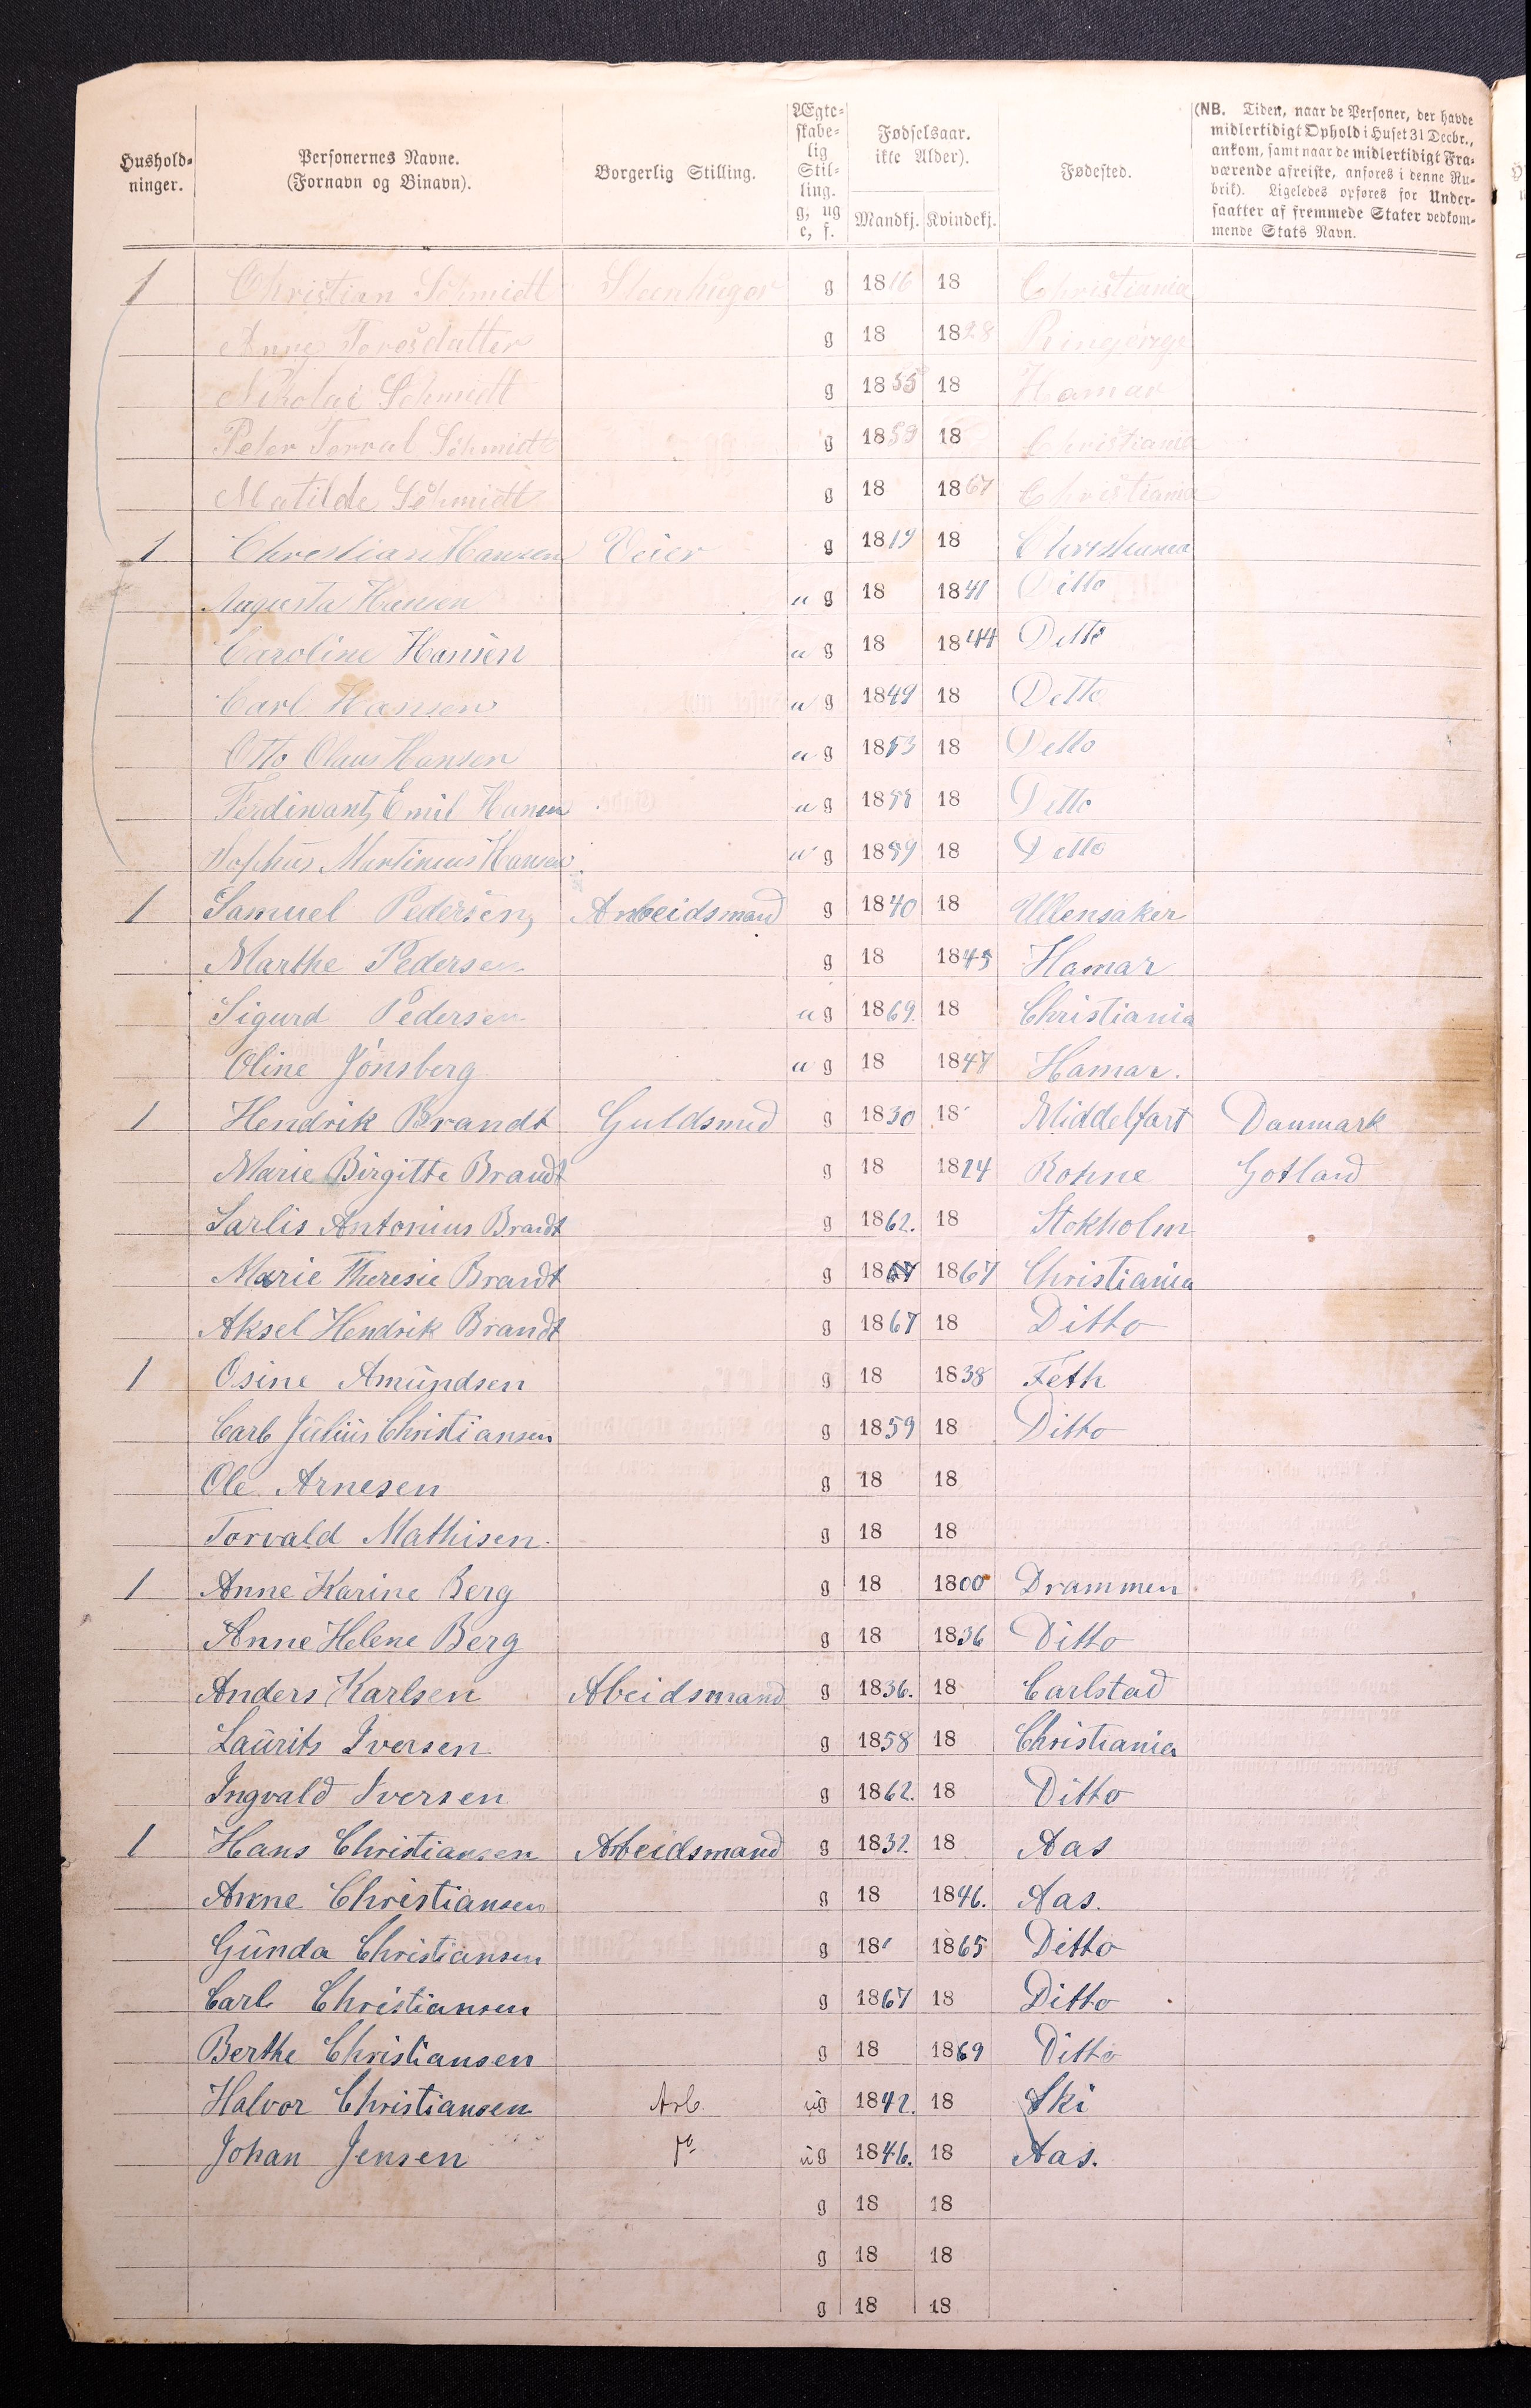 Hushold-
ninger.
Personernes Navne.
(Fornavn og Binavn).
Borgerlig Stilling.
Ægte-
skabe-
lig
Stil-
ling.
g, ug
e, f.
Fødselsaar.
ikke Alder).
Mandkj. Kvindekj.
Fødested.
(NB. Tiden, naar de Personer, der havde
midlertidigt Ophold i Huset 31 Decbr.,
ankom, samt naar de midlertidigt Fra-
værende afreiste, anføres i denne Ru-
brik). Ligeledes opføres for Under-
saatter af fremmede Stater vedkom-
mende Stats Navn.
1 Christian Schmidt Steenhuger g 1816 18 Christiania
Anne Toresdatter g 18 1828
Nikolai Schmidt g 1855 18 Hamar
Peter Torval Schmidt g 1859 18 Christiania
Matilde Schmidt g 18 1867 Christiania
1 Christian Hansen Veier g 1819 18 Christiania
Augusta Hansen u g 18 1841 Ditto
Caroline Hansen u g 18 1844 Ditto
Carl Hansen u g 1849 18 Ditto
Otto Olaus Hansen u g 1853 18 Ditto
Ferdinant Emil Hansen u g 18 18 Ditto
Sophus Martinius Hansen u g 1859 18 Ditto
1 Samuel Pedersen Arbeidsmand g 1840 18 Ullensaker
Marthe Pedersen g 18 1845 Hamar
Sigurd Pedersen u g 1869. 18 Christiania
Oline Jönsberg u g 18 1847 Hamar.
1 Hendrik Brandt Guldsmed g 1830 18 Middelfart Danmark
Marie Birgitte Brandt g 18 1824 Rohne Gotland
Sarlis Antonius Brandt g 1862. 18 Stokholm
Marie Theresie Brandt g 1867 1867 Christiania
Aksel Hendrik Brandt g 1867 18 Ditto
1 Osine Amundsen g 18 1838 Feth
Carl Julius Christiansen g 1859 18 Ditto
Ole Arnesen g 18 18
Torvald Mathisen. g 18 18
1 Anne Karine Berg g 18 1800 Drammen
Anne Helene Berg g 18 1836 Ditto
Anders Karlsen Abeidsmand g 1836. 18 Carlstad
Laurits Iversen g 1858 18 Christiania
Ingvald Iversen g 1862. 18 Ditto
1 Hans Christiansen Arbeidsmand g 1832. 18 Aas
Anne Christiansen g 18 1846. Aas.
Gunda Christiansen g 18 1865 Ditto
Carl Christiansen g 1867 18 Ditto
Berthe Christiansen g 18 1869 Ditto
Halvor Christiansen Arb. ug 1842. 18 Ski
Johan Jensen ug 1846. 18 Aas.
g 18 18
g 18 18
g 18 18